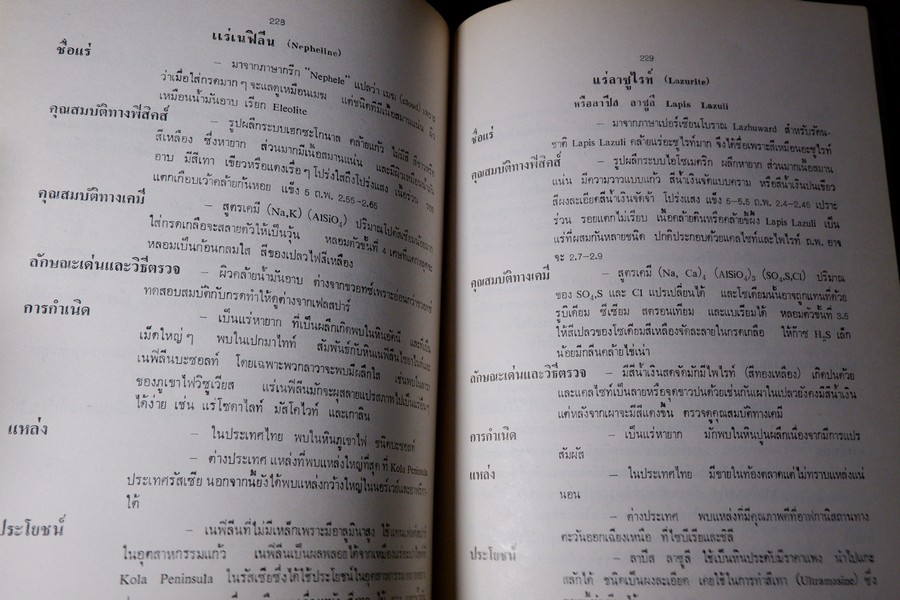 228
แร่เนฟิลีน (Nepheline)
ชื่อแร่
– มาจากภาษากรีก "Nephele" แปลว่า เมฆ (cloud)
ว่าเมื่อใส่กรดมากๆ จะแลดูเหมือนเมฆ แต่ชนิดที่มีเนื้อสมานแน่น
เหมือนน้ำมันอาบ เรียก Eleolite
คุณสมบัติทางฟิสิคส์
– รูปผลึกระบบเฮกซะโกนาล คล้ายแก้ว ไม่มีสี
สีเหลือง ซึ่งหายาก ส่วนมากมีเนื้อสมานแน่น และมีผิวเหมือนน้ำมัน
อาบ มีสีเทา เขียวหรือแดงเรื่อๆ โปร่งใสถึงโปร่งแสง เนื้อร่วน
แตกเกือบเว้าคล้ายก้นหอย แข็ง 6 ถ.พ. 2.55-2.65
คุณสมบัติทางเคมี
– สูตรเคมี (Na,K) (AlSiO₄) ปริมาณโปตัสเซียม
ใส่กรดเกลือจะสลายตัวให้เป็นวุ้น หลอมตัวขั้นที่ 4
หลอมเป็นก้อนกลมใส สีของเปลวไฟสีเหลือง
ลักษณะเด่นและวิธีตรวจ
– ผิวคล้ายน้ำมันอาบ ต่างจากขวอทซ์เพราะอ่อนกว่า
ทดสอบสมบัติกับกรดทำให้ดูต่างจากเฟลสปาร์
การกำเนิด
– เป็นแร่หายาก ที่เป็นผลึกเกิดพบในหินอัคนี
เม็ดใหญ่ๆ พบในเปกมาไทท์ สัมพันธ์กับหินเนฟิลีนไซอาไนท์
เนฟิลีนบะซอลท์ โดยเฉพาะพวกลาวาจะพบมีผลึกใส เช่นพบในลาวา
ของภูเขาไฟวิซูเวียส แร่เนฟิลีนมักจะผุสลายแปรสภาพไปเป็นแร่อื่นๆ
ได้ง่าย เช่น แร่โซดาไลท์ มัสโคไวท์ และเกาลิน
แหล่ง
– ในประเทศไทย พบในหินภูเขาไฟ ชนิดบะซอลต์
– ต่างประเทศ แหล่งที่พบแหล่งใหญ่ที่สุด ที่ Kola Peninsula
ประเทศรัสเซีย นอกจากนี้ยังได้พบแหล่งกว้างใหญ่ในนอร์เวย์และอาฟริกา
ใต้
ประโยชน์
– เนฟิลีนที่ไม่มีเหล็กเพราะมีอาลูมินาสูง ใช้แทนเฟลด์สปาร์
ในอุตสาหกรรมแก้ว เนฟิลีนเป็นผลพลอยได้จากเหมือง
Kola Peninsula ในรัสเซียซึ่งได้ใช้ประโยชน์ในอุตสาหกรรม
229
แร่ลาซูไรท์ (Lazurite)
หรือลาปีส ลาซูลี Lapis Lazuli
ชื่อแร่
– มาจากภาษาเปอร์เซียนโบราณ Lazhuward สำหรับรัตน-
ชาติ Lapis Lazuli คล้ายแร่อะซูไรท์มาก จึงให้ชื่อเพราะสีเหมือนอะซูไรท์
คุณสมบัติทางฟิสิคส์
– รูปผลึกระบบไอโซเมตริก ผลึกหายาก ส่วนมากเนื้อสมาน
แน่น มีความวาวแบบแก้ว สีน้ำเงินจัดแบบคราม หรือสีน้ำเงินปนเขียว
สีผงละเอียดสีน้ำเงินจัดจ้า โปร่งแสง แข็ง 5-5.5 ถ.พ. 2.4-2.45 เปราะ
ร่วน รอยแตกไม่เรียบ เนื้อคล้ายดินหรือคล้ายขี้ผึ้ง Lapis Lazuli เป็น
แร่ที่ผสมกันหลายชนิด ปกติประกอบด้วยแคลไซท์และไพไรท์ ถ.พ. อาจ
จะ 2.7-2.9
คุณสมบัติทางเคมี
– สูตรเคมี (Na, Ca)₄ (AlSiO₄)₃ (SO₄,S,Cl) ปริมาณ
ของ SO₄,S และ Cl แปรเปลี่ยนได้ และโซเดียมนั้นอาจถูกแทนที่ด้วย
รูบิเดียม ซีเซียม สตรอนเทียม และแบเรียมได้ หลอมตัวขั้นที่ 3.5
ให้สีเปลวของโซเดียมสีเหลืองจัดละลายในกรดเกลือ ให้ก๊าซ H₂S เล็ก
น้อยมีกลิ่นคล้ายไข่เน่า
ลักษณะเด่นและวิธีตรวจ – มีสีน้ำเงินสดจัดมักมีไพไรท์ (สีทองเหลือง) เกิดปนด้วย
และแคลไซท์เป็นลายหรือจุดขาวปนด้วยเช่นกันเผาในเปลวยังคงมีสีน้ำเงิน
แต่หลังจากเผาจะมีสีแดงขึ้น ตรวจดูคุณสมบัติทางเคมี
การกำเนิด
– เป็นแร่หายาก มักพบในหินปูนผลึกเนื่องจากมีการแปร
สัมผัส
แหล่ง
– ในประเทศไทย มีขายในท้องตลาดแต่ไม่ทราบแหล่งแน่
นอน
– ต่างประเทศ พบแหล่งที่มีคุณภาพดีที่อาฟกานิสถานทาง
ตะวันออกเฉียงเหนือ ที่ไซบีเรียและชิลี
ประโยชน์
– ลาปีส ลาซูลี ใช้เป็นหินประดับมีราคาแพง นำไปแกะ
สลักได้ ชนิดเป็นผงละเอียด เคยใช้ในการทำสีเทา (Ultramarine) ซึ่ง